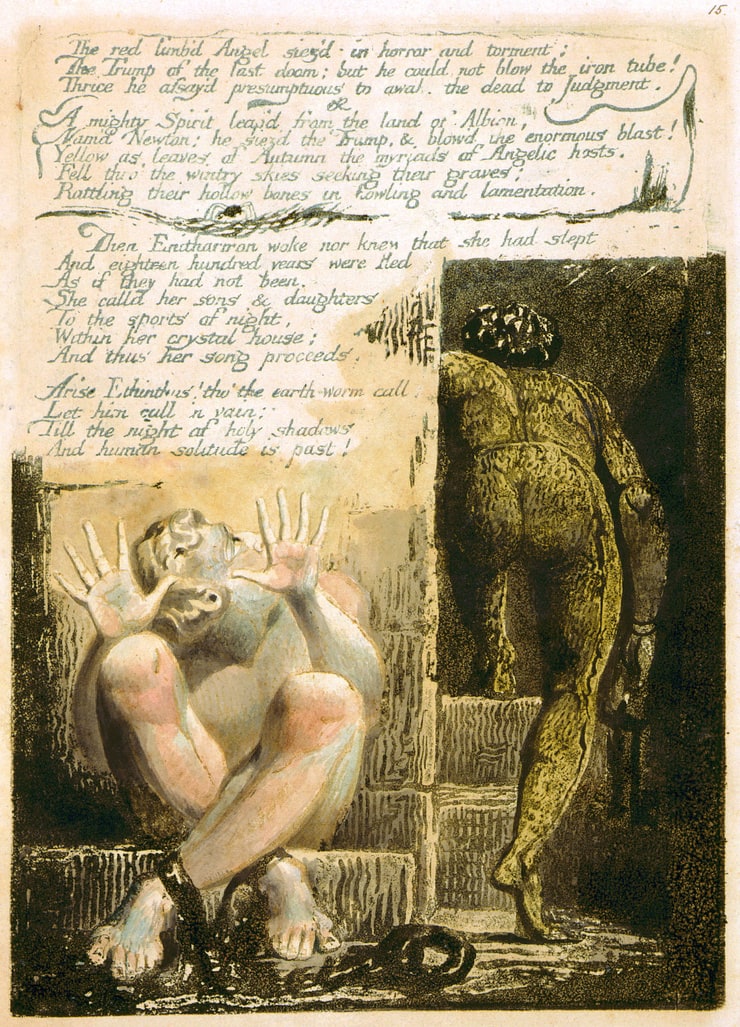 15
The red limb'd Angel siez'd in horror and torment;
The Trump of the last doom; but he could not blow the iron tube!
Thrice he assay'd presumptuous to awake the dead to Judgment.
A mighty Spirit leap'd from the land of Albion,
Nam'd Newton; he siez'd the Trump, & blow'd the enormous blast!
Yellow as leaves of Autumn the myriads of Angelic hosts,
Fell thro' the wintry skies seeking their graves;
Rattling their hollow bones in howling and lamentation.
Then Enitharmon woke nor knew that she had slept
And eighteen hundred years were fled
As if they had not been.
She calld her sons & daughters
To the sports of night,
Within her crystal house;
And thus her song proceeds.
Arise Ethinthus! tho' the earth-worm call;
Let him call in vain;
Till the night of holy shadows
And human solitude is past!